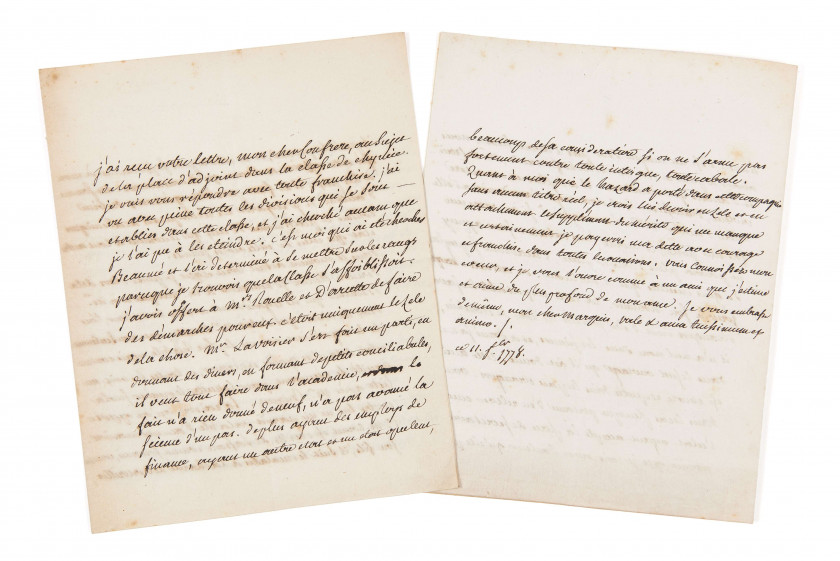 j'ai recu votre lettre, mon cher Confrere, au Sujet
de la place d'adjoint dans la classe de chymie.
je vais vous répondre avec toute franchise. j'ai
vu avec peine toutes les divisions qui se sont
etablies dans cette classe, et j'ai cherché autant que
je l'ai pu à les eteindre. c'est moi qui ai eté chercher
Beaumé et l'ai determiné à se mettre sur les rangs
parceque je trouvois que la classe s'affoiblissoit.
j'avois offert à Mrs Rouelle et D'arcette de faire
des démarches pour eux. c'étoit uniquement le zele
de la chose. Mr. Lavoisier s'est fait un parti, en
donnant des diners, en formant de petits conciliabules,
il veut tout faire dans l'academie, le
fait n'a rien donné de neuf, n'a pas avancé la
science d'un pas. de plus ayant des employs de
finance, ayant un autre etat et un etat opulent,
beaucoup de sa consideration si on ne s'arme pas
fortement contre toute intrigue, toute cabale.
Quant à moi que le hazard a porté dans cette compagnie
sans aucun titre réel, je crois lui devoir en zele et en
attachement le supplement du mérite qui me manque
et certainement je payerai ma dette avec courage
et franchise dans toutes les occasions. vous connoissés mon
coeur, et je vous l'ouvre comme à un ami que j'estime
et aime du plus profond de mon ame. Je vous embrasse
de même, mon cher Marquis, vale et ama tuissimum ex
animo ./.
ce 11. 1778.